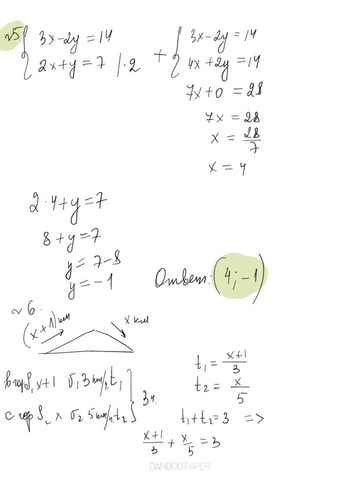 №5 { 3x-2y=14
2x+y=7 |·2
+ { 3x-2y=14
4x+2y=14
7x+0=28
7x=28
x=28/7
x=4
2·4+y=7
8+y=7
y=7-8
y=-1
Ответ: (4;-1)
№6.
(x+1)км x км
в гор S₁ x+1 v₁ 3 км/ч t₁
с гор S₂ x v₂ 5 км/ч t₂ } 3ч.
t₁=(x+1)/3
t₂=x/5
t₁+t₂=3 =>
(x+1)/3+x/5=3
BAMBOO PAPER